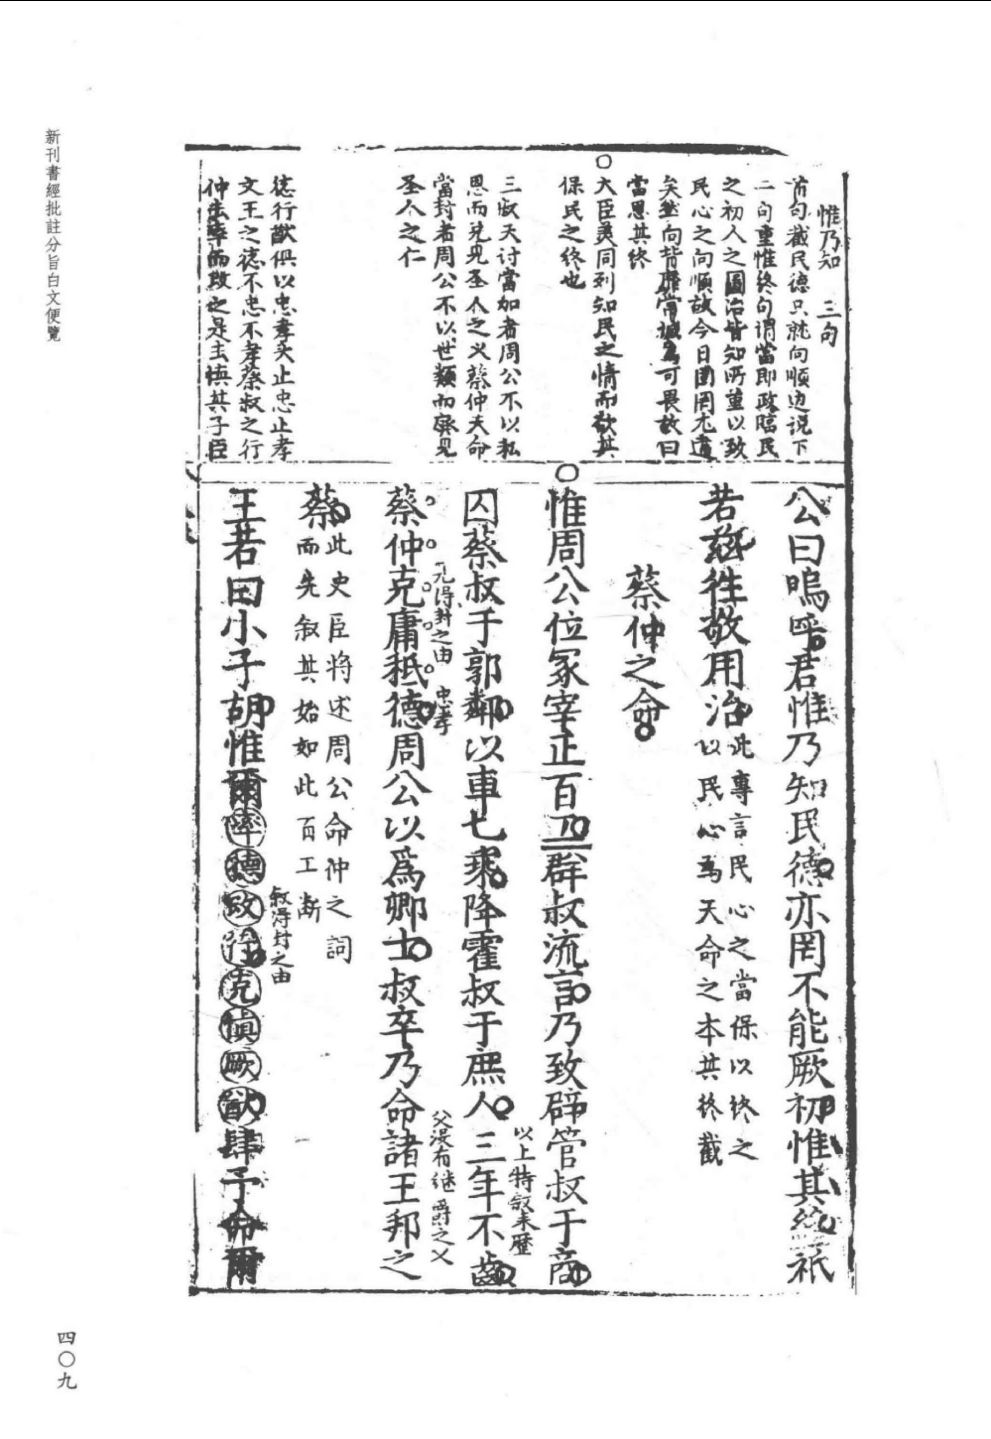 新刊書經批註分旨白文便覽
惟乃知 三句
首句截民德只就向順边说下
二句重惟终句谓當即政臨民
之初人之圖治皆知所重以致
民心之向順故今日固罔尤違
矣然向背靡常誠為可畏故曰
當思其终
大臣类同列知民之情而欲其
保民之终也
三叔天讨當加者周公不以私
思而免見圣人之义蔡仲天命
當封者周公不以世類而廢見
圣人之仁
德行猷俱以忠孝头止忠止孝
文王之德不忠不孝蔡叔之行
仲去率而改之是去慎其子臣
公曰嗚呼君惟乃知民德亦罔不能厥初惟其終祇
若兹往敬用治
此專言民心之當保以终之
以民心爲天命之本其终截
蔡仲之命
惟周公位冢宰正百工群叔流言乃致辟管叔于商
以上特叙来歷
囚蔡叔于郭鄰以車七乘降霍叔于庶人三年不齒
元得封之由 忠孝
父没有继爵之义
蔡仲克庸祗德周公以爲卿士叔卒乃命諸王邦之
蔡
此史臣将述周公命仲之詞
而先叙其始如此百工断
叙得封之由
王若曰小子胡惟爾率德改行克慎厥猷肆予命爾
四〇九